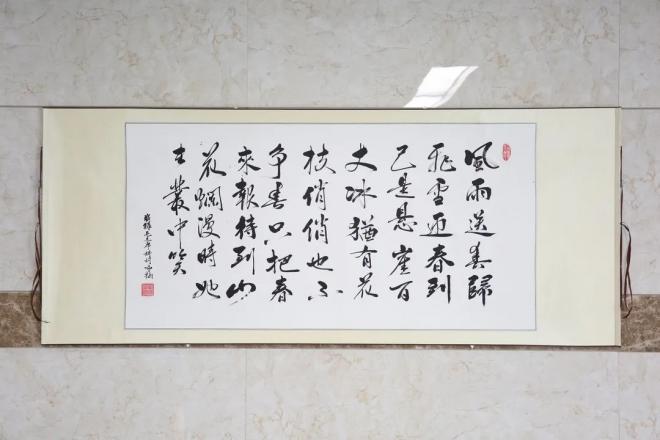 風雨送春歸
飛雪迎春到
已是悬崖百
丈冰猶有花
枝俏俏也不
争春只把春
來報待到山
花爛漫時她
在叢中笑
毛主席詩詞咏梅